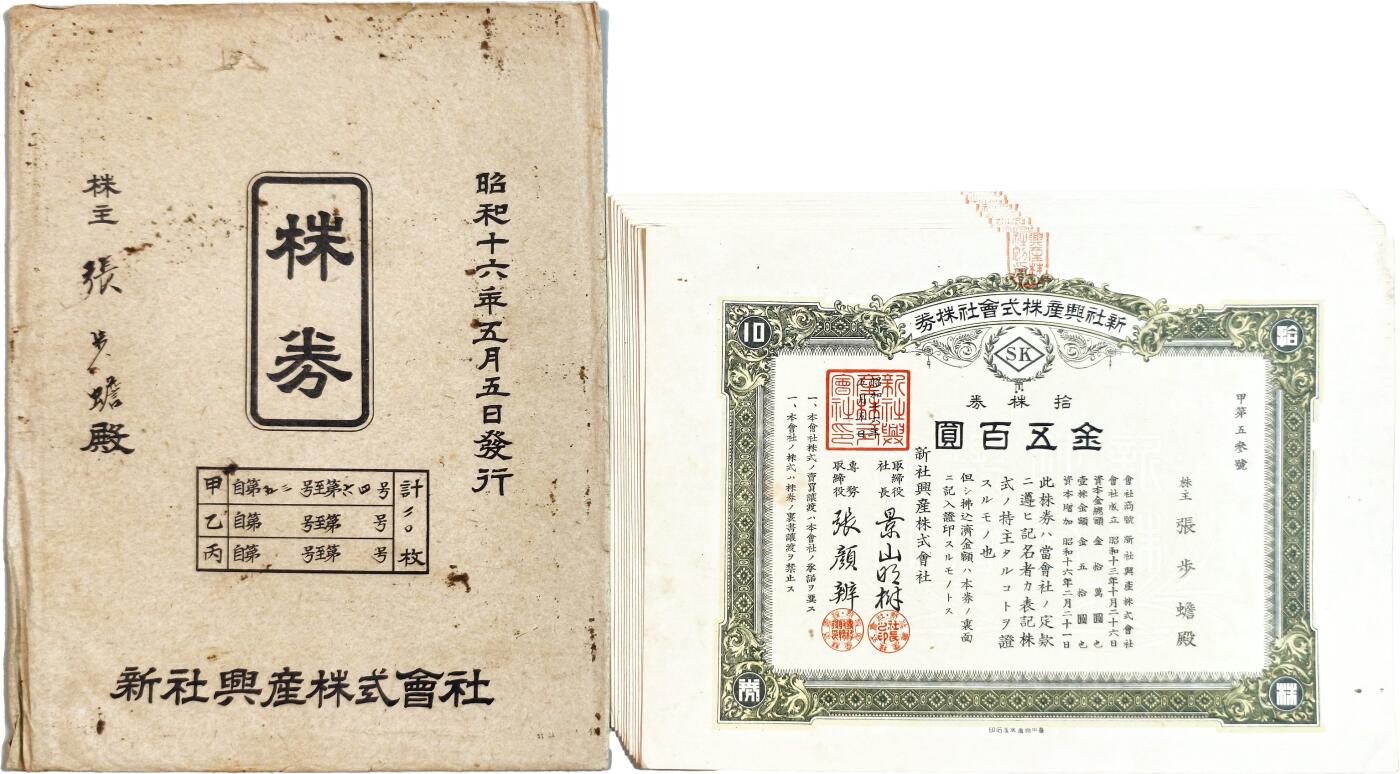 昭和十六年五月五日發行
株券
株主 張 歩 蟾 殿
甲 自第 号至第 号
乙 自第 号至第 号
丙 自第 号至第 号
計 枚
新社興産株式會社
新社興産株式會社株券
SK
拾
十
株
券
拾株券
金五百圓
甲第五參號
株主 張歩蟾殿
會社商號 新社興產株式會社
會社成立 昭和十三年十月二十六日
資本金總額 金拾萬圓也
壹株金額 金五拾圓也
資本増加 昭和十六年二月二十一日
此株券ハ當會社ノ定款
ニ遵ヒ記名者カ表記株
式ノ持主タルコトヲ證
スルモノ也
但シ拂込濟金額ハ本券ノ裏面
ニ記入證印スルモノトス
新社興產株式會社
取締役社長 景山明樹
專務取締役 張顔辨
新社興產株式會社印
一、本會社株式ノ賣買讓渡ハ本會社ノ承諾ヲ要ス
一、本會社ノ株式ハ株券ノ裏書讓渡ヲ禁止ス